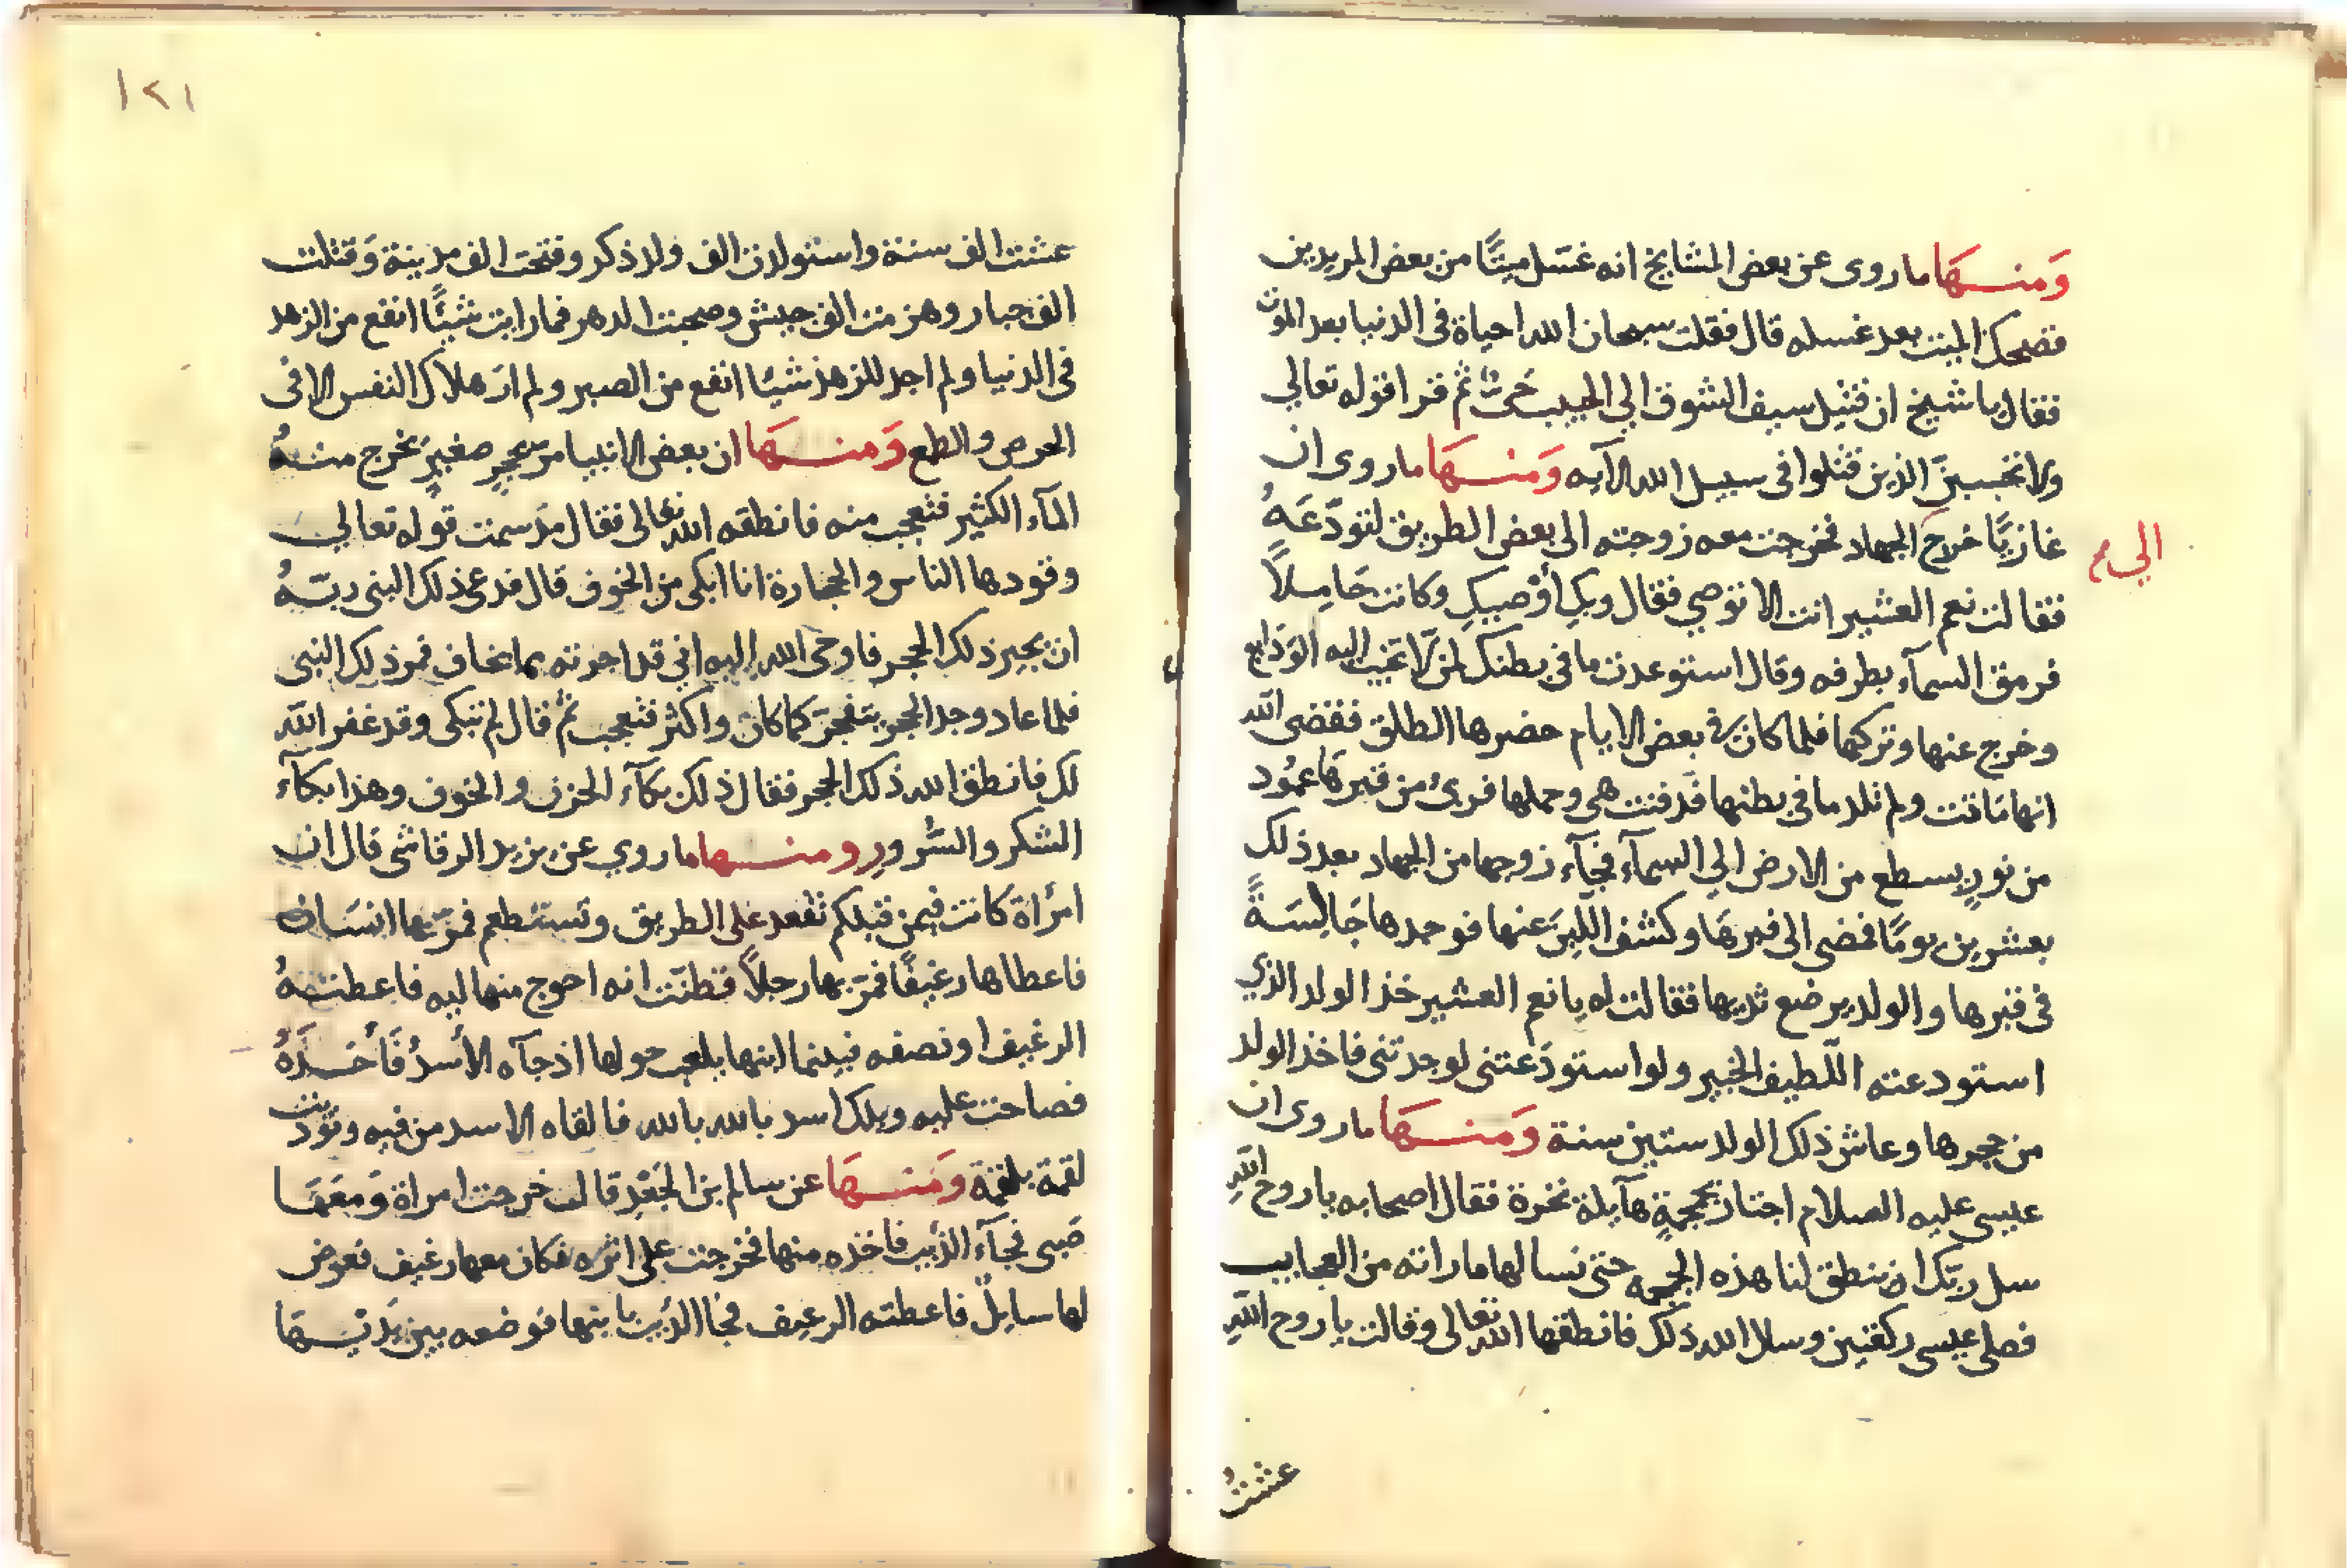 وَمنــهَا ما روى عن بعض المشايخ انه غسّل ميتًا من بعض المريدين
فضحك الميت بعد غسله قال فقلت سبحان الله احياة فى الدنيا بعد الموت
فقال يا شيخ ان قتيل سيف الشوق الي الحبيب حَىٌّ ثم قرا قوله تعالي
ولا تحسبنَّ الذين قتلوا فى سبيل الله الآيه وَمنــهَا ما روى ان
غازيًا خرج الجهاد فخرجت معه زوجته الى بعض الطريق لتودّعَهُ
الي م
فقالت نعم العشير انت الا توصي فقال وبكِ أوْصيكِ وكانت حَامِلاً
فرمق السمآء بطرفه وقال استوعدت ما فى بطنك لمن لا تخيب اليه الودَايع
وخرج عنها وتركها فلما كان فى بعض الايام حضرها الطلق فقضى الله
انها مَاتت ولم تلد ما فى بطنها فدفنت هى وحملها فرئ من قبرهَا عمُود
من نورٍ يسطع من الارض الي السمآء فجآء زوجها من الجهاد بعد ذلك
بعشرين يومًا فمضى الى قبرهَا وكشف اللبِنَ عنها فوجدها جَالِسَةً
فى قبرها والولد يرضع ثديها فقالت له يا نعم العشير خذ الولد الذي
استودعته اللّطيف الخبير ولو استودَعتنى لوجدتنى فاخذ الولد
من حجرها وعاش ذلك الولد ستين سنة وَمنــهَا ما روى ان
عيسى عليه السلام اجتاز بجمجمةٍ هآيلة نخرة فقال اصحابه يا روح اللهِ
سل ربّك ان ينطق لنا هذه الجمجمه حتى نسالها ما راته من العجايب
فصلى عيسى ركعتين وسال الله ذلك فانطقها الله تعالى وقالت يا روح اللهِ
عشتُ
١٢١
عشت الف سنة واستولدت الف ولد ذكر وفتحت الف مدينة وَقتلت
الف جبار وهزمت الف جيش وصحبت الدهر فما رايت شيئًا انفع من الزهد
فى الدنيا ولم اجد للزهد شيئا انفع من الصبر ولم ارَ هلاك النفس الا فى
الحرص والطمع وَمنــهَا ان بعض الانبيا مرّ بحجرٍ صغيرٍ يخرج منــهُ
المآء الكثير فتعجب منه فانطقه الله تعالى فقال مذ سمعت قوله تعالي
وقودها الناس والحجارة انا ابكى من الخوف قال فدعى ذلك النبى ربّــهُ
ان يجير ذلك الحجر فاوحى الله اليه انى قد اجرته مما يخاف فمر ذلك النبى
فلما عاد وجد الحجر يتفجّر كما كان واكثر فتعجب ثم قال لم تبكى وقد غفر الله
لك فانطق الله ذلك الحجر فقال ذلك بكآء الحزن والخوف وهذا بكآء
الشكر والسُّرورِ ومنــها ما روي عن يزيد الرقاشى قال ان
امرَاة كانت فيمن قبلكم تقعد على الطريق وتستطعم فمرّ بها انسَان
فاعطاها رغيفًا فمرّ بها رجلاً فظنّت انه احوج منها ليه فاعطتــهُ
الرغيف او نصفه فبينما ابنها يلعب حولها اذ جآه الأسدُ فَأخــذَهُ
فصاحت عليه ويلك اسد بالله بالله فالقاه الاسد من فيه ونوديت
لقمة بلقمة وَمنــهَا عن سالم ابن الجَعْدِ قال خرجت امراة وَمعَهَــا
صَبى فجآء الذيب فاخذه منها فخرجت على اثره فكان معها رغيف فعرض
لها سايلٌ فاعطته الرغيف فجا الذيب بابنها فوضعه بين يَديْــهَا